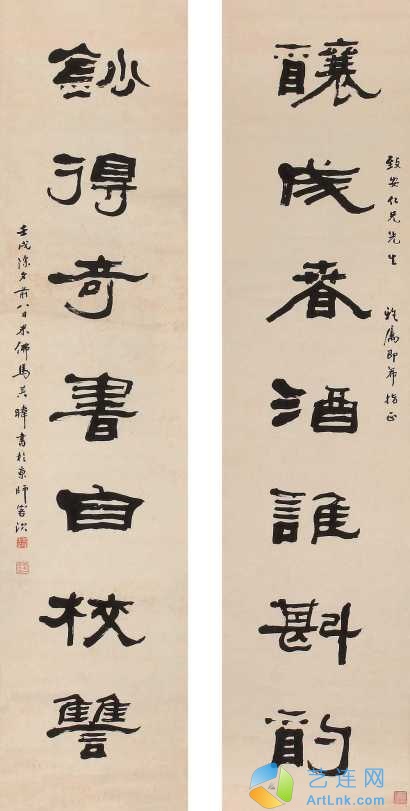 致安仁兄先生 雅屬即希指正
釀成春酒誰斟酌
鈔得奇書自校讐
壬戌除夕前八日米佛馬書於京師客次
艺连网
ArtLnk.com